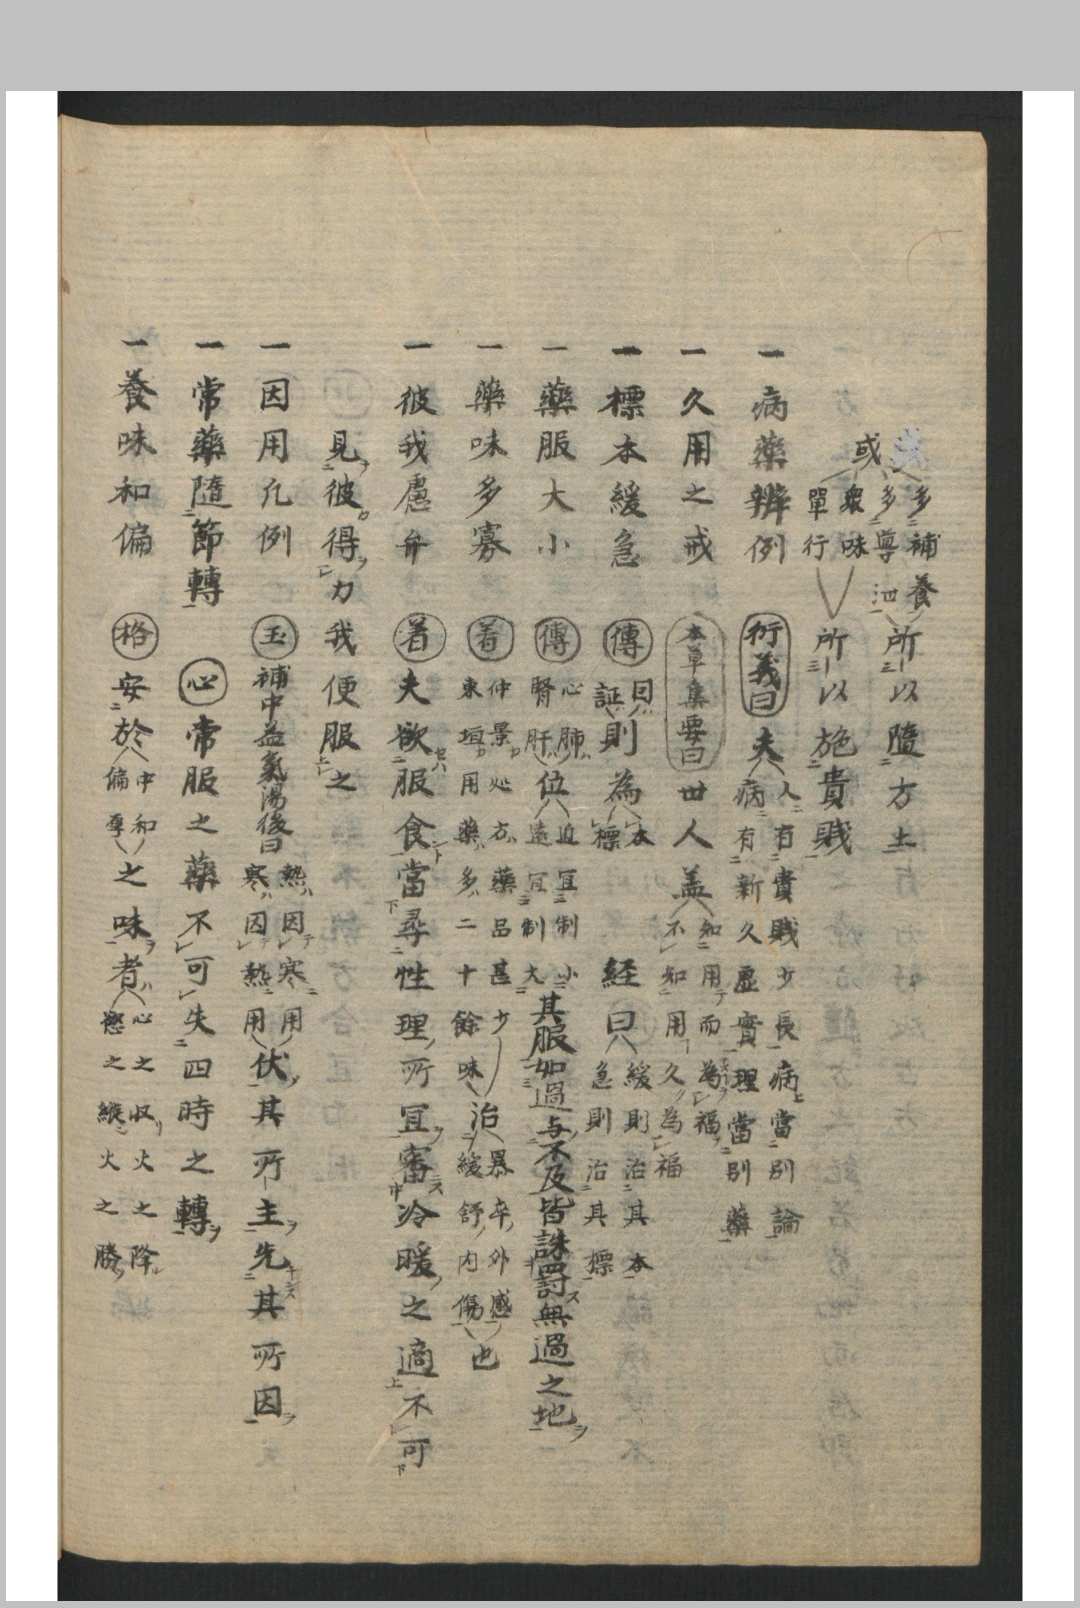 多補養 多辱泄 所以隨方土
或 衆味 單行 所以施貴賎
一 病藥辨例 衍義曰 夫 人有貴賎少長病當別論 病有新久虚實理當別藥
一 久用之戒 本草集要曰 世人盖 知用而為福 不知用久為福
一 標本緩急 傳 因 証 則為 本 標 経曰 緩則治其本 急則治其標
一 藥服大小 傳 心肺 腎肝 位 近宜制小 遠宜制大 其服如過与不及皆誅罰無過之地
一 藥味多寡 着 仲景処方藥品甚少 東垣用藥多二十餘味 治 暴卒外感 緩舒内傷 也
一 彼我慮弁 着 夫欲服食當尋性理所宜審冷暖之適不可
見彼得力我便服之
一 因用凡例 玉 補中益氣湯後曰 熱因寒用 寒因熱用 伏其所主先其所因
一 常藥隨節轉 心 常服之藥不可失四時之轉
一 養味和偏 格 安於 中和 偏厚 之味者 心之収火之降 慾之縦火之勝